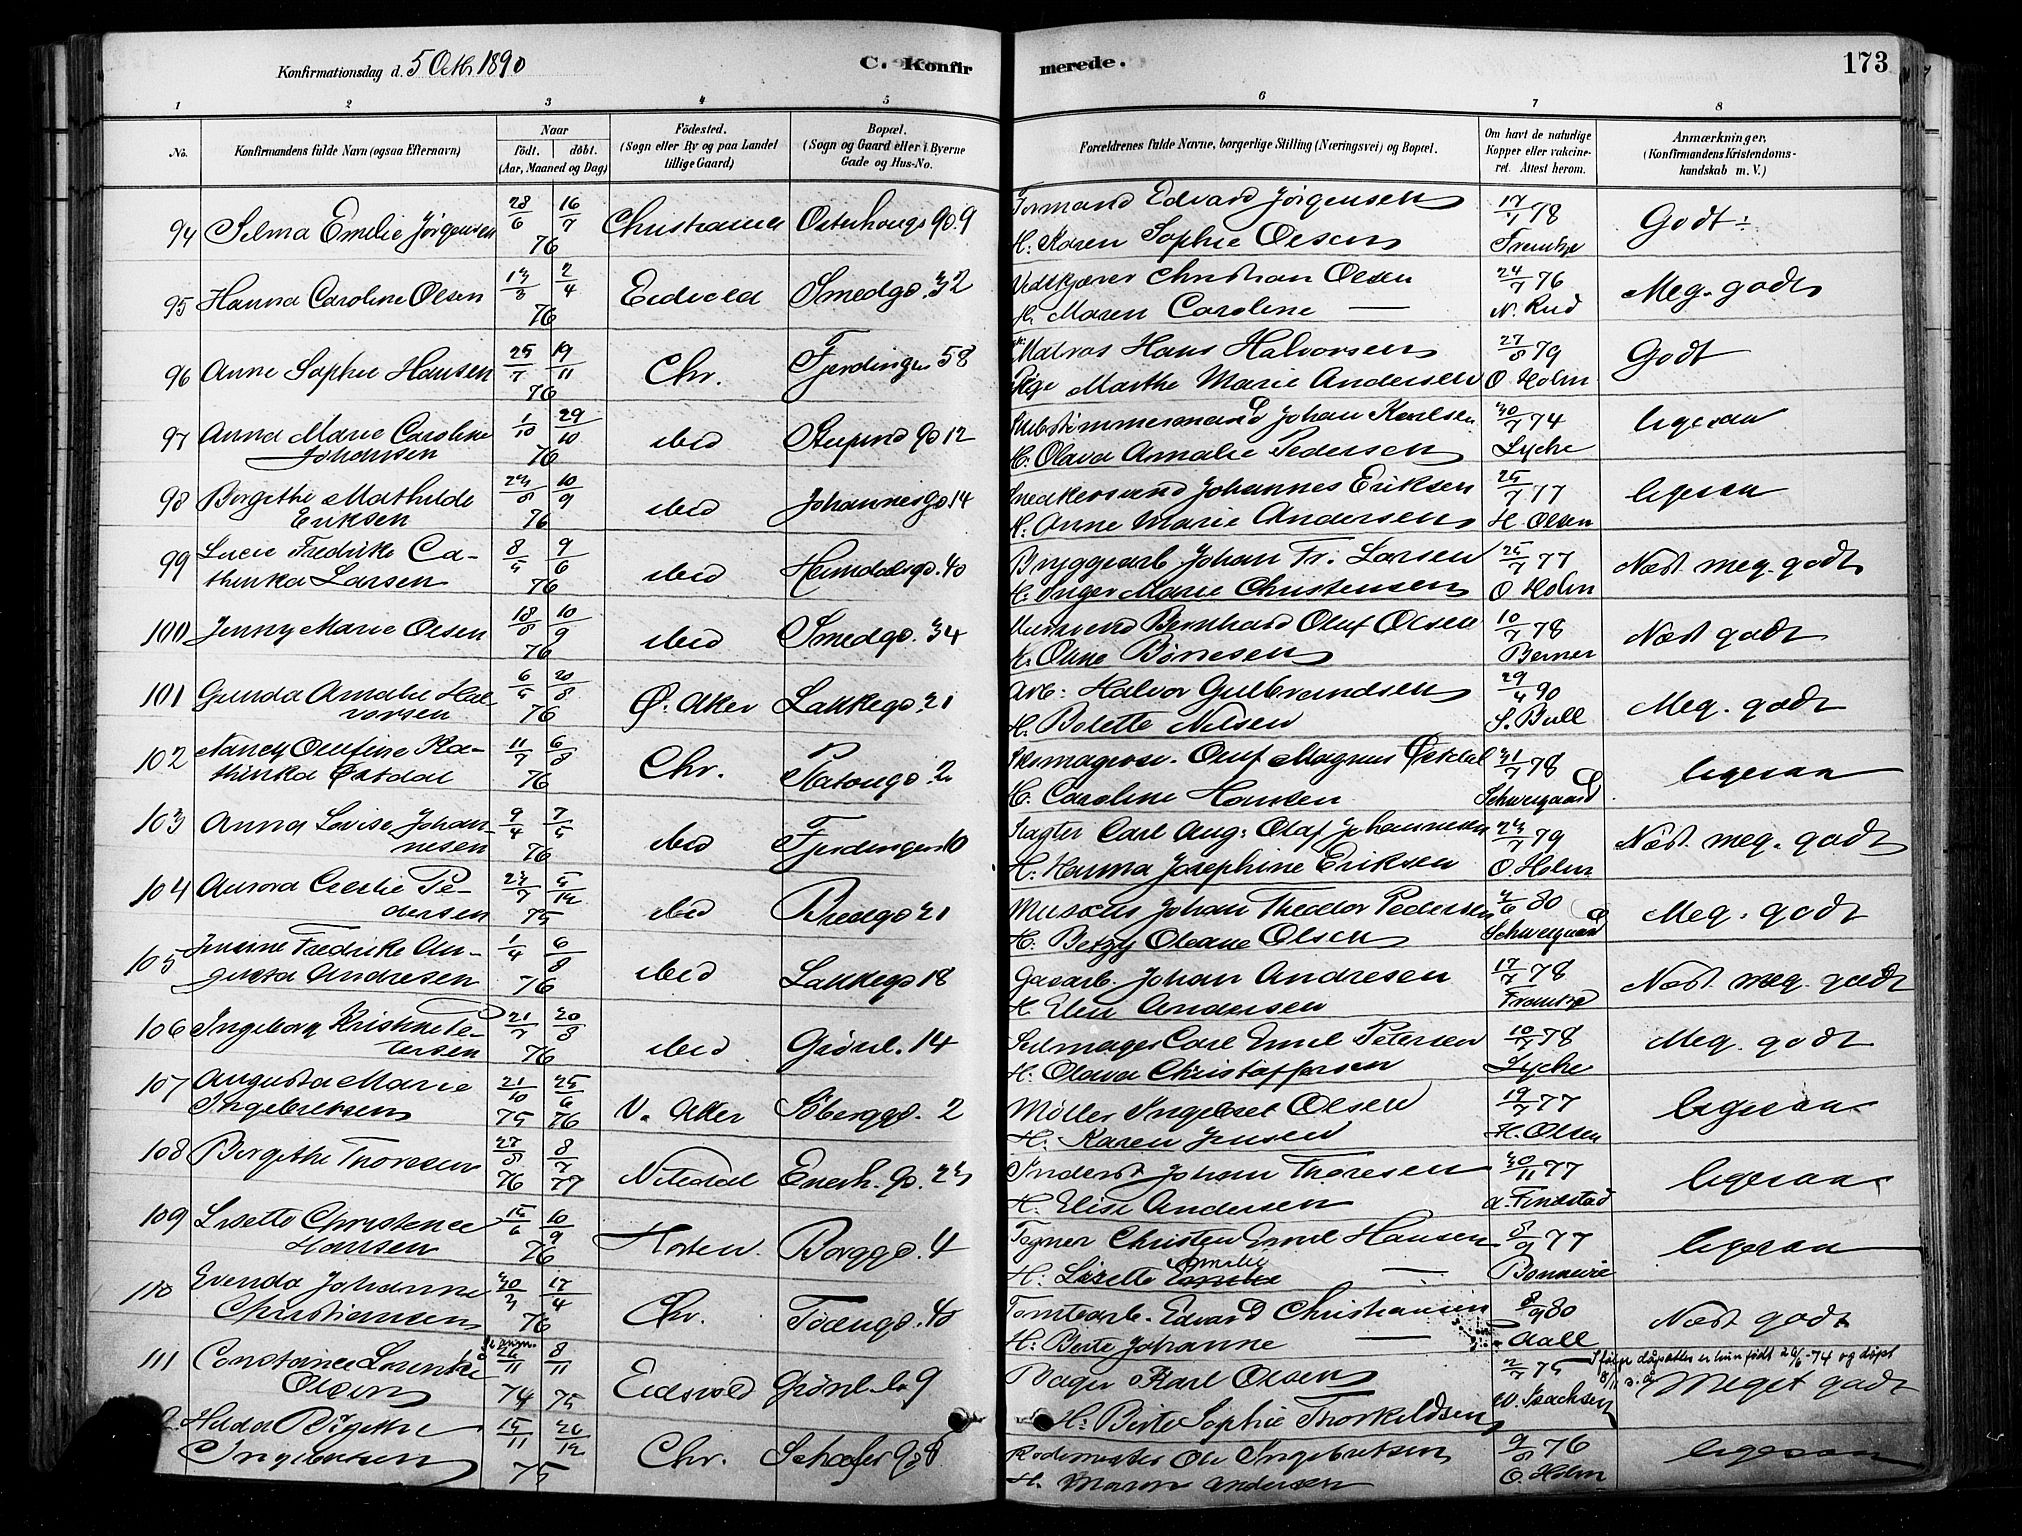 Konfirmationsdag d. 5 Octb 1890
C. Konfir
merede.
173
1 2 3 4 5 6 7 8
No.
Konfirmandens fulde Navn (ogsaa Efternavn)
Naar
født. døbt.
(Aar, Maaned og Dag)
Fødested.
(Sogn eller By og paa Landet
tillige Gaard)
Bopæl.
(Sogn og Gaard eller i Byerne
Gade og Hus-No.
Forældrenes fulde Navne, borgerlige Stilling (Næringsvei) og Bopæl.
Om havt de naturlige
Kopper eller vakcine-
ret. Attest herom.
Anmærkninger,
(Konfirmandens Kristendoms-
kundskab m. V.)
94 Selma Emilie Jørgensen 28/6 16/7 76 Christiania Osterhausg 9
Edvard Jørgensen
H. Karen Sophie Olsen
17/7 78
Godt
95 Hanna Caroline Olsen 13/3 2/4 76 Eidsvold Smedg. 32
Christian Olsen
H. Maren Caroline —
24/7 76
N. Rud
Meg. godt
96 Anne Sophie Hansen 25/7 19/11 76 Chr. Fjerdingen 58
Matros Hans Halvorsen
Pige Marthe Marie Andersen
27/8 79
O Holm
Godt
97 Anna Marie Caroline
Johansen
1/10 29/10 76 ibid
Johan Karlsen
H. Olava Amalie Pedersen
30/7 74
Lyche
ligesaa
98 Bergithe Mathilde
Eriksen
23/8 10/9 76 ibid Johannesg 14
Snedkersvend Johannes Eriksen
H. Anne Marie Andersen
25/7 77
H. Olsen
ligesaa
99 Lucie Fredrikke Ca-
thinka Larsen
8/5 9/6 76 ibid Heimdalsg. 40
Bryggearb Johan Fr. Larsen
H. Inger Marie Christensen
25/7 77
O Holm
Næst meg. godt
100 Jenny Marie Olsen 18/8 10/9 76 ibid Smedg. 34
Mursvend Bernhard Oluf Olsen
H. Oline Børresen
10/7 78
Berner
Næst godt
101 Gunda Amalie Hal
vorsen
6/5 20/8 76 Ø. Aker Lakkeg. 21
Arb. Halvor Gulbrandsen
H. Bolette Nilsen
29/4 90
S. Bull
Meg. godt
102 Nancy Olufine Ka-
thinka Østdal
11/7 6/8 76 Chr. Platoug. 2
Skomagersv. Oluf Magnus Østdal
H. Caroline Hansen
31/7 78
Schweigaard
ligesaa
103 Anna Lovise Johan-
nesen
9/4 7/5 76 ibid Fjerdingen 10
Slagter Carl Aug. Olaf Johannesen
H. Hanna Josephine Eriksen
23/7 79
O. Holm
Næst meg. godt
104 Aurora Cecilie Pe-
dersen
23/7 5/12 75 ibid Bredg. 21
Musicus Johan Theodor Pedersen
H. Betzy Oleane Olsen
3/6 80
Schweigaard
Meg. godt
105 Jensine Fredrikke Au-
gusta Andresen
1/4 6/8 76 ibid Lakkeg 18
Gasarb. Johan Andresen
H. Elen Andersen
17/7 78
Næst meg. godt
106 Ingeborg Kristine Pe-
tersen
21/7 20/8 76 ibid Grønl. 14
Seilmager Carl Emil Petersen
H. Olava Christoffersen
10/7 78
Lyche
Meg. godt
107 Augusta Marie
Ingebretsen
21/10 75 25/6 76 V. Aker Søbergg. 2
Møller Ingebret Olsen
H. Karen Jensen
19/7 77
H. Olsen
ligesaa
108 Bergithe Thoresen 27/8 76 8/7 77 Nitedal Enerh. g. 23
Inderst Johan Thoresen
H. Elise Andersen
30/11 77
A. Finstad
ligesaa
109 Lisette Christence
Hansen
15/6 10/9 76 Horten. Borgg. 4
Tegner Christen Emil Hansen
H. Lisette Emilie —
8/9 77
Bonnevie
ligesaa
110 Evenda Johanne
Christiansen
30/3 17/4 76 Chr. Tøieng. 40
Tomtearb. Edvard Christiansen
H. Berte Johanne —
8/9 80
Aall
Næst godt
111 Constance Laurentze
Olsen
26/11 74 8/11 75 Eidsvold Grønl. 9
Bager Karl Olsen
H. Berte Sophie Thorkildsen
2/7 75
W. Isachsen
Ifølge dåpsattes er hun født 20/6-74 og døpt
8/11 s. år
Meget godt
Hilda Birgithe
Ingebretsen
15/11 26/12 75 Chr. Schæfersg 8
Rodemester Ole Ingebretsen
H. Maren Andersen
9/8 76
O. Holm
ligesaa